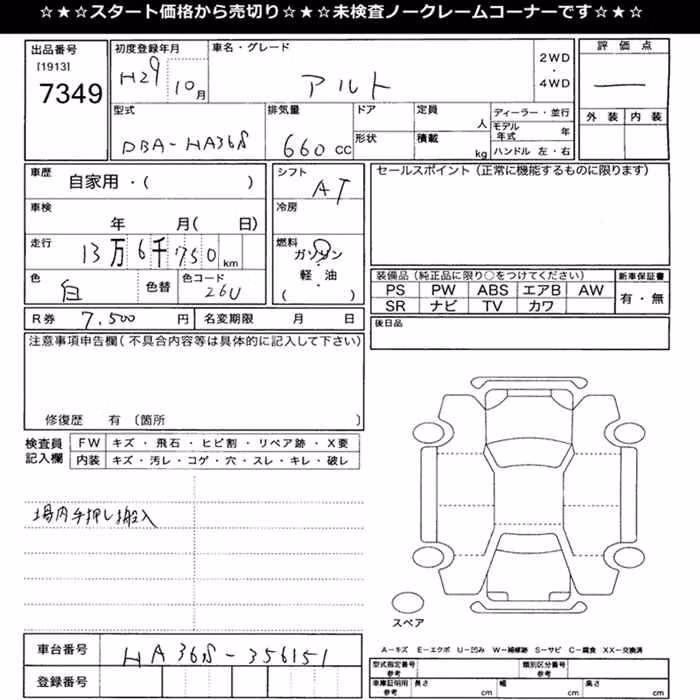 ☆★☆★スタート価格から売切り☆★☆★未検査ノークレームコーナーです☆★☆★
出品番号 初度登録年月 車名・グレード 2WD 評価点
[1913] H29 10月 アルト ・
7349 4WD 外装 内装
型式 排気量 ドア 定員 人 ディーラー・並行
DBA-HA36S 660cc 形状 積載 kg モデル年式 年
ハンドル 左・右
車歴 自家用・( ) シフト AT セールスポイント(正常に機能するものに限ります)
車検 年 月( 日) 冷房
走行 13万6千750km 燃料 ガソリン
軽・油
( )
色 白 色替 色コード 26U
装備品(純正品に限り○をつけてください) 新車保証書
PS PW ABS エアB AW 有・無
SR ナビ TV カワ
R券 7,500円 名変期限 月 日 後日品
注意事項申告欄(不具合内容等は具体的に記入して下さい)
修復歴 有〔箇所 〕
検査員 FW キズ・飛石・ヒビ割・リペア跡・X要
記入欄 内装 キズ・汚レ・コゲ・穴・スレ・キレ・破レ
場内手押し搬入
スペア
A-キズ E-エクボ U-凹み W-補修跡 S-サビ C-腐食 XX-交換済
車台番号 HA36S-356151
型式指定番号 参考 類別区分番号 参考
登録番号
車庫証明用 参考 長さ cm 幅 cm 高さ cm